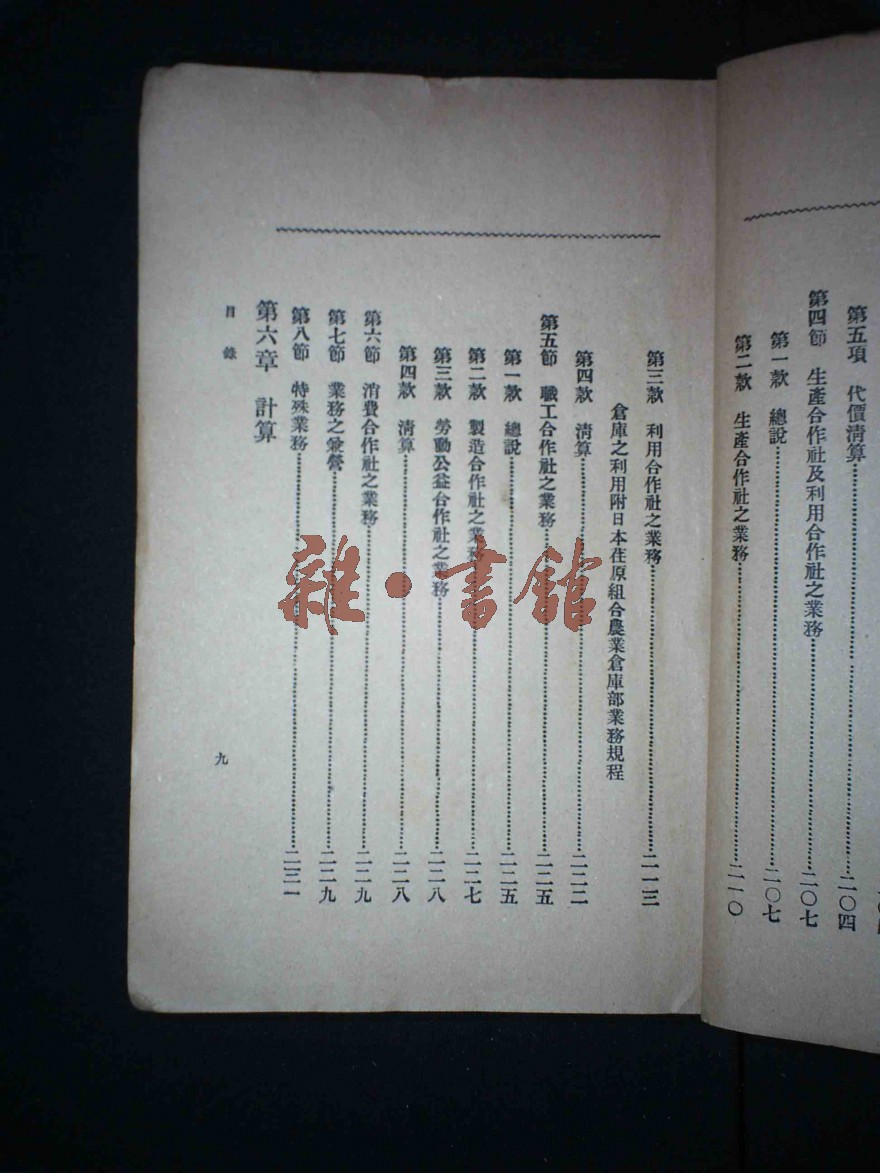 第五項　代價清算……二〇四
第四節　生產合作社及利用合作社之業務……二〇七
第一款　總說……二〇七
第二款　生產合作社之業務……二一〇
第三款　利用合作社之業務……二一三
倉庫之利用附日本荏原組合農業倉庫部業務規程
第四款　清算……二二二
第五節　職工合作社之業務……二二五
第一款　總說……二二五
第二款　製造合作社之業務……二二七
第三款　勞動公益合作社之業務……二二八
第四款　清算……二二八
第六節　消費合作社之業務……二二九
第七節　業務之兼營……二二九
第八節　特殊業務……二三一
第六章　計算
目錄
九
雜·書館